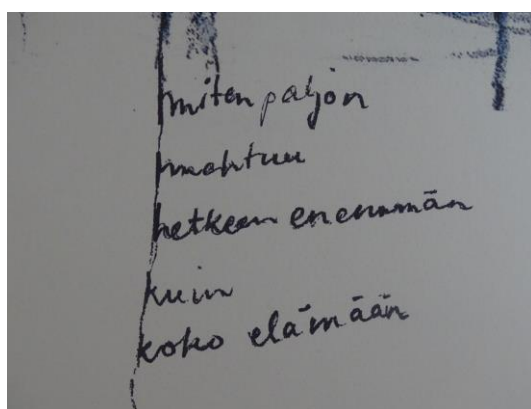 miten paljon
mahtuu
hetkeen enemmän
kuin
koko elämään